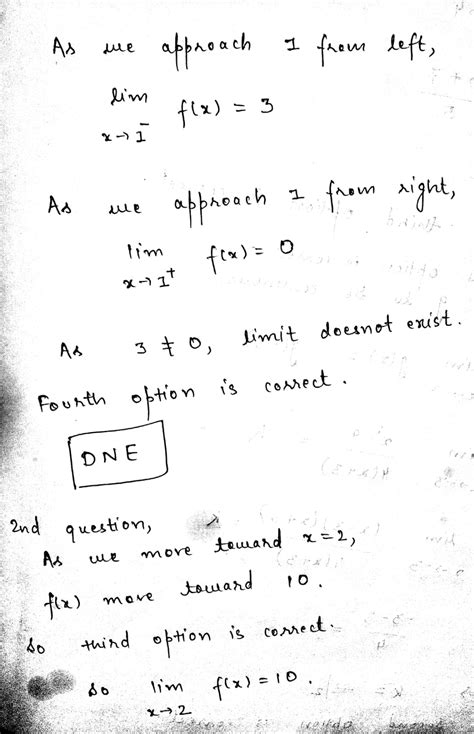 As we approach 1 from left,
lim f(x) = 3
x→1⁻
As we approach 1 from right,
lim f(x) = 0
x→1⁺
As 3 ≠ 0, limit doesnot exist.
Fourth option is correct.
DNE
2nd question,
As we move toward x=2,
f(x) move toward 10.
So third option is correct.
So lim f(x) = 10.
x→2